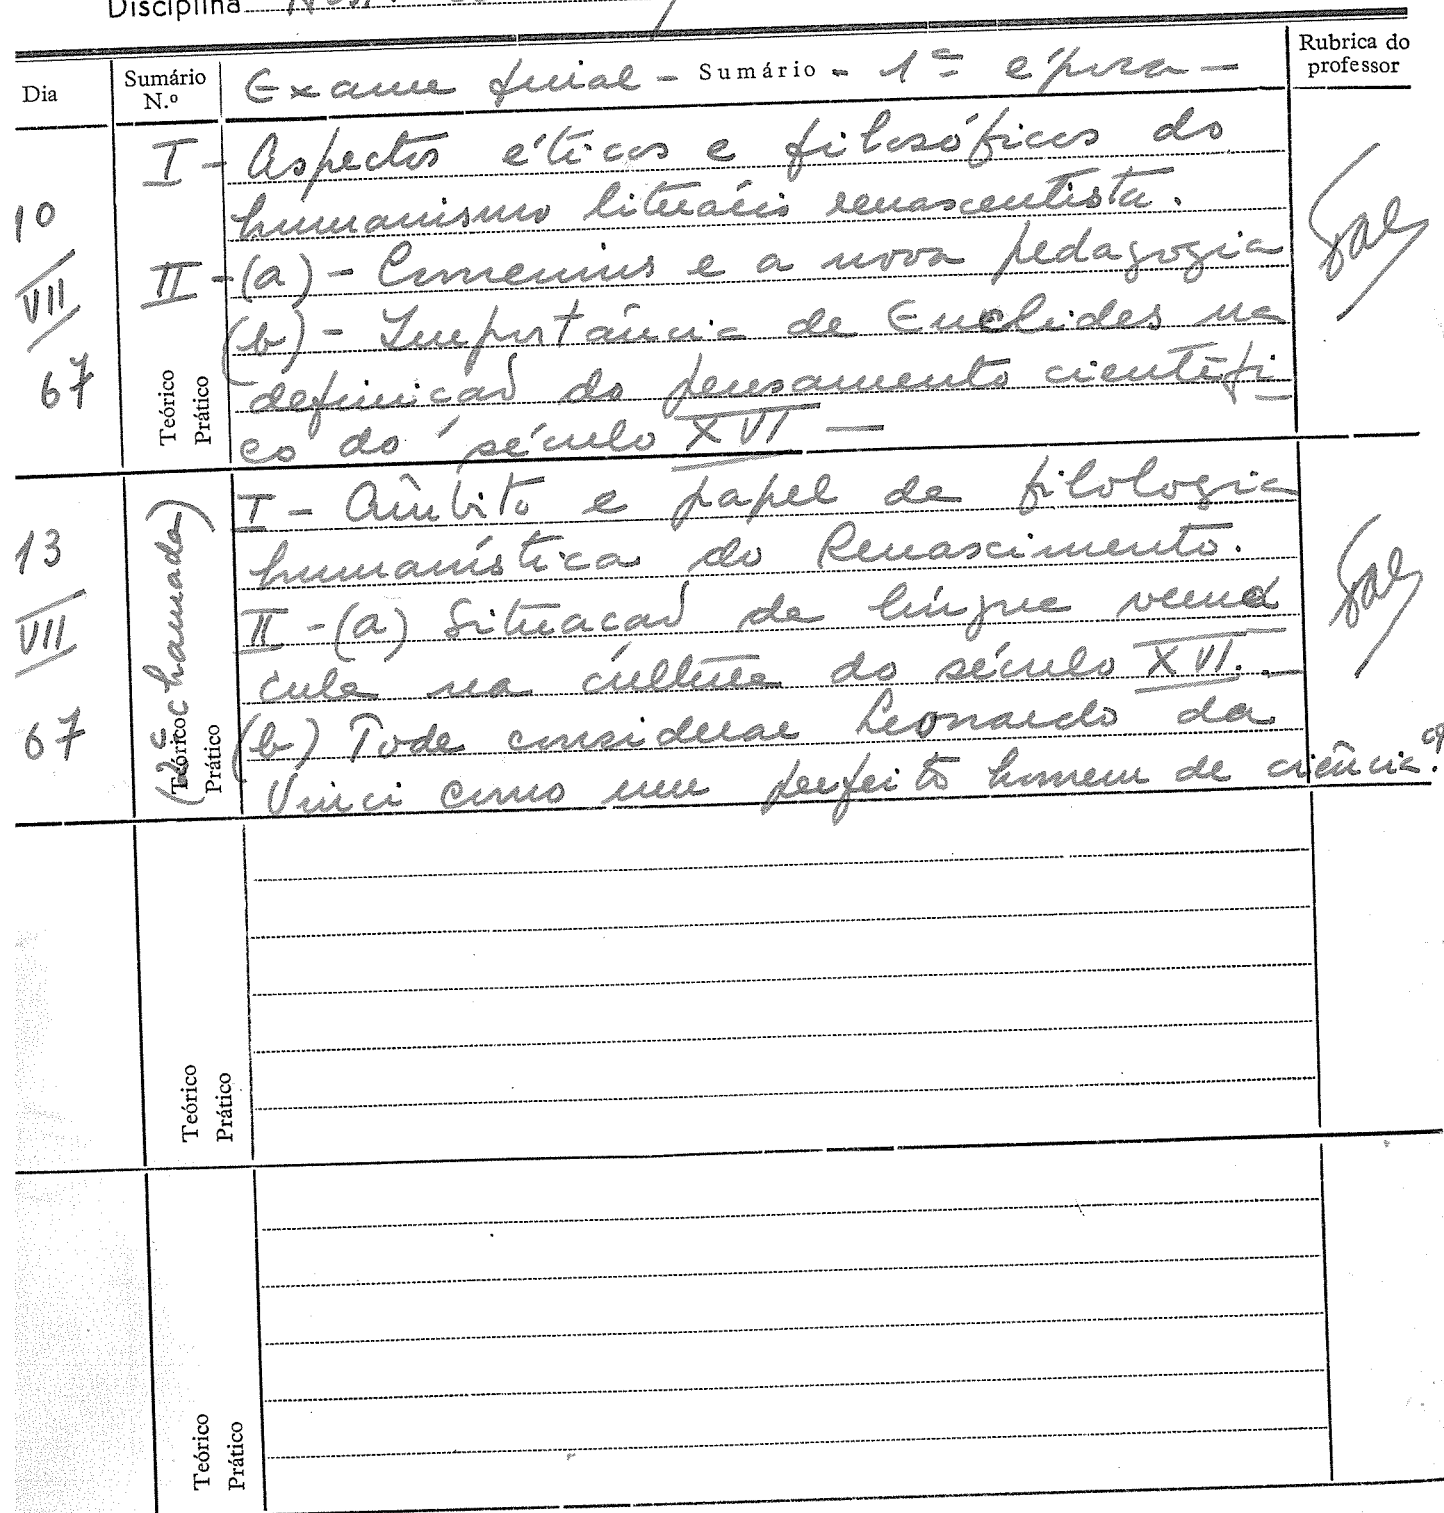 Disciplina
Dia
Sumário N.º
Exame final - Sumário - 1ª época -
Rubrica do professor
I - Aspectos éticos e filosóficos do
humanismo literário renascentista.
10
VII
67
II - (a) - Comenius e a nova pedagogia
(b) - Importância de Euclides na
definição do pensamento científi-
co do século XVI -
Teórico
Prático
13
VII
67
(2ª chamada)
I - Âmbito e papel da filologia
humanística do Renascimento.
II - (a) Situação da língua verná
cula na cultura do século XVI. -
(b) Pode considerar Leonardo da
Vinci como um perfeito homem de ciência?
Teórico
Prático
Teórico
Prático
Teórico
Prático